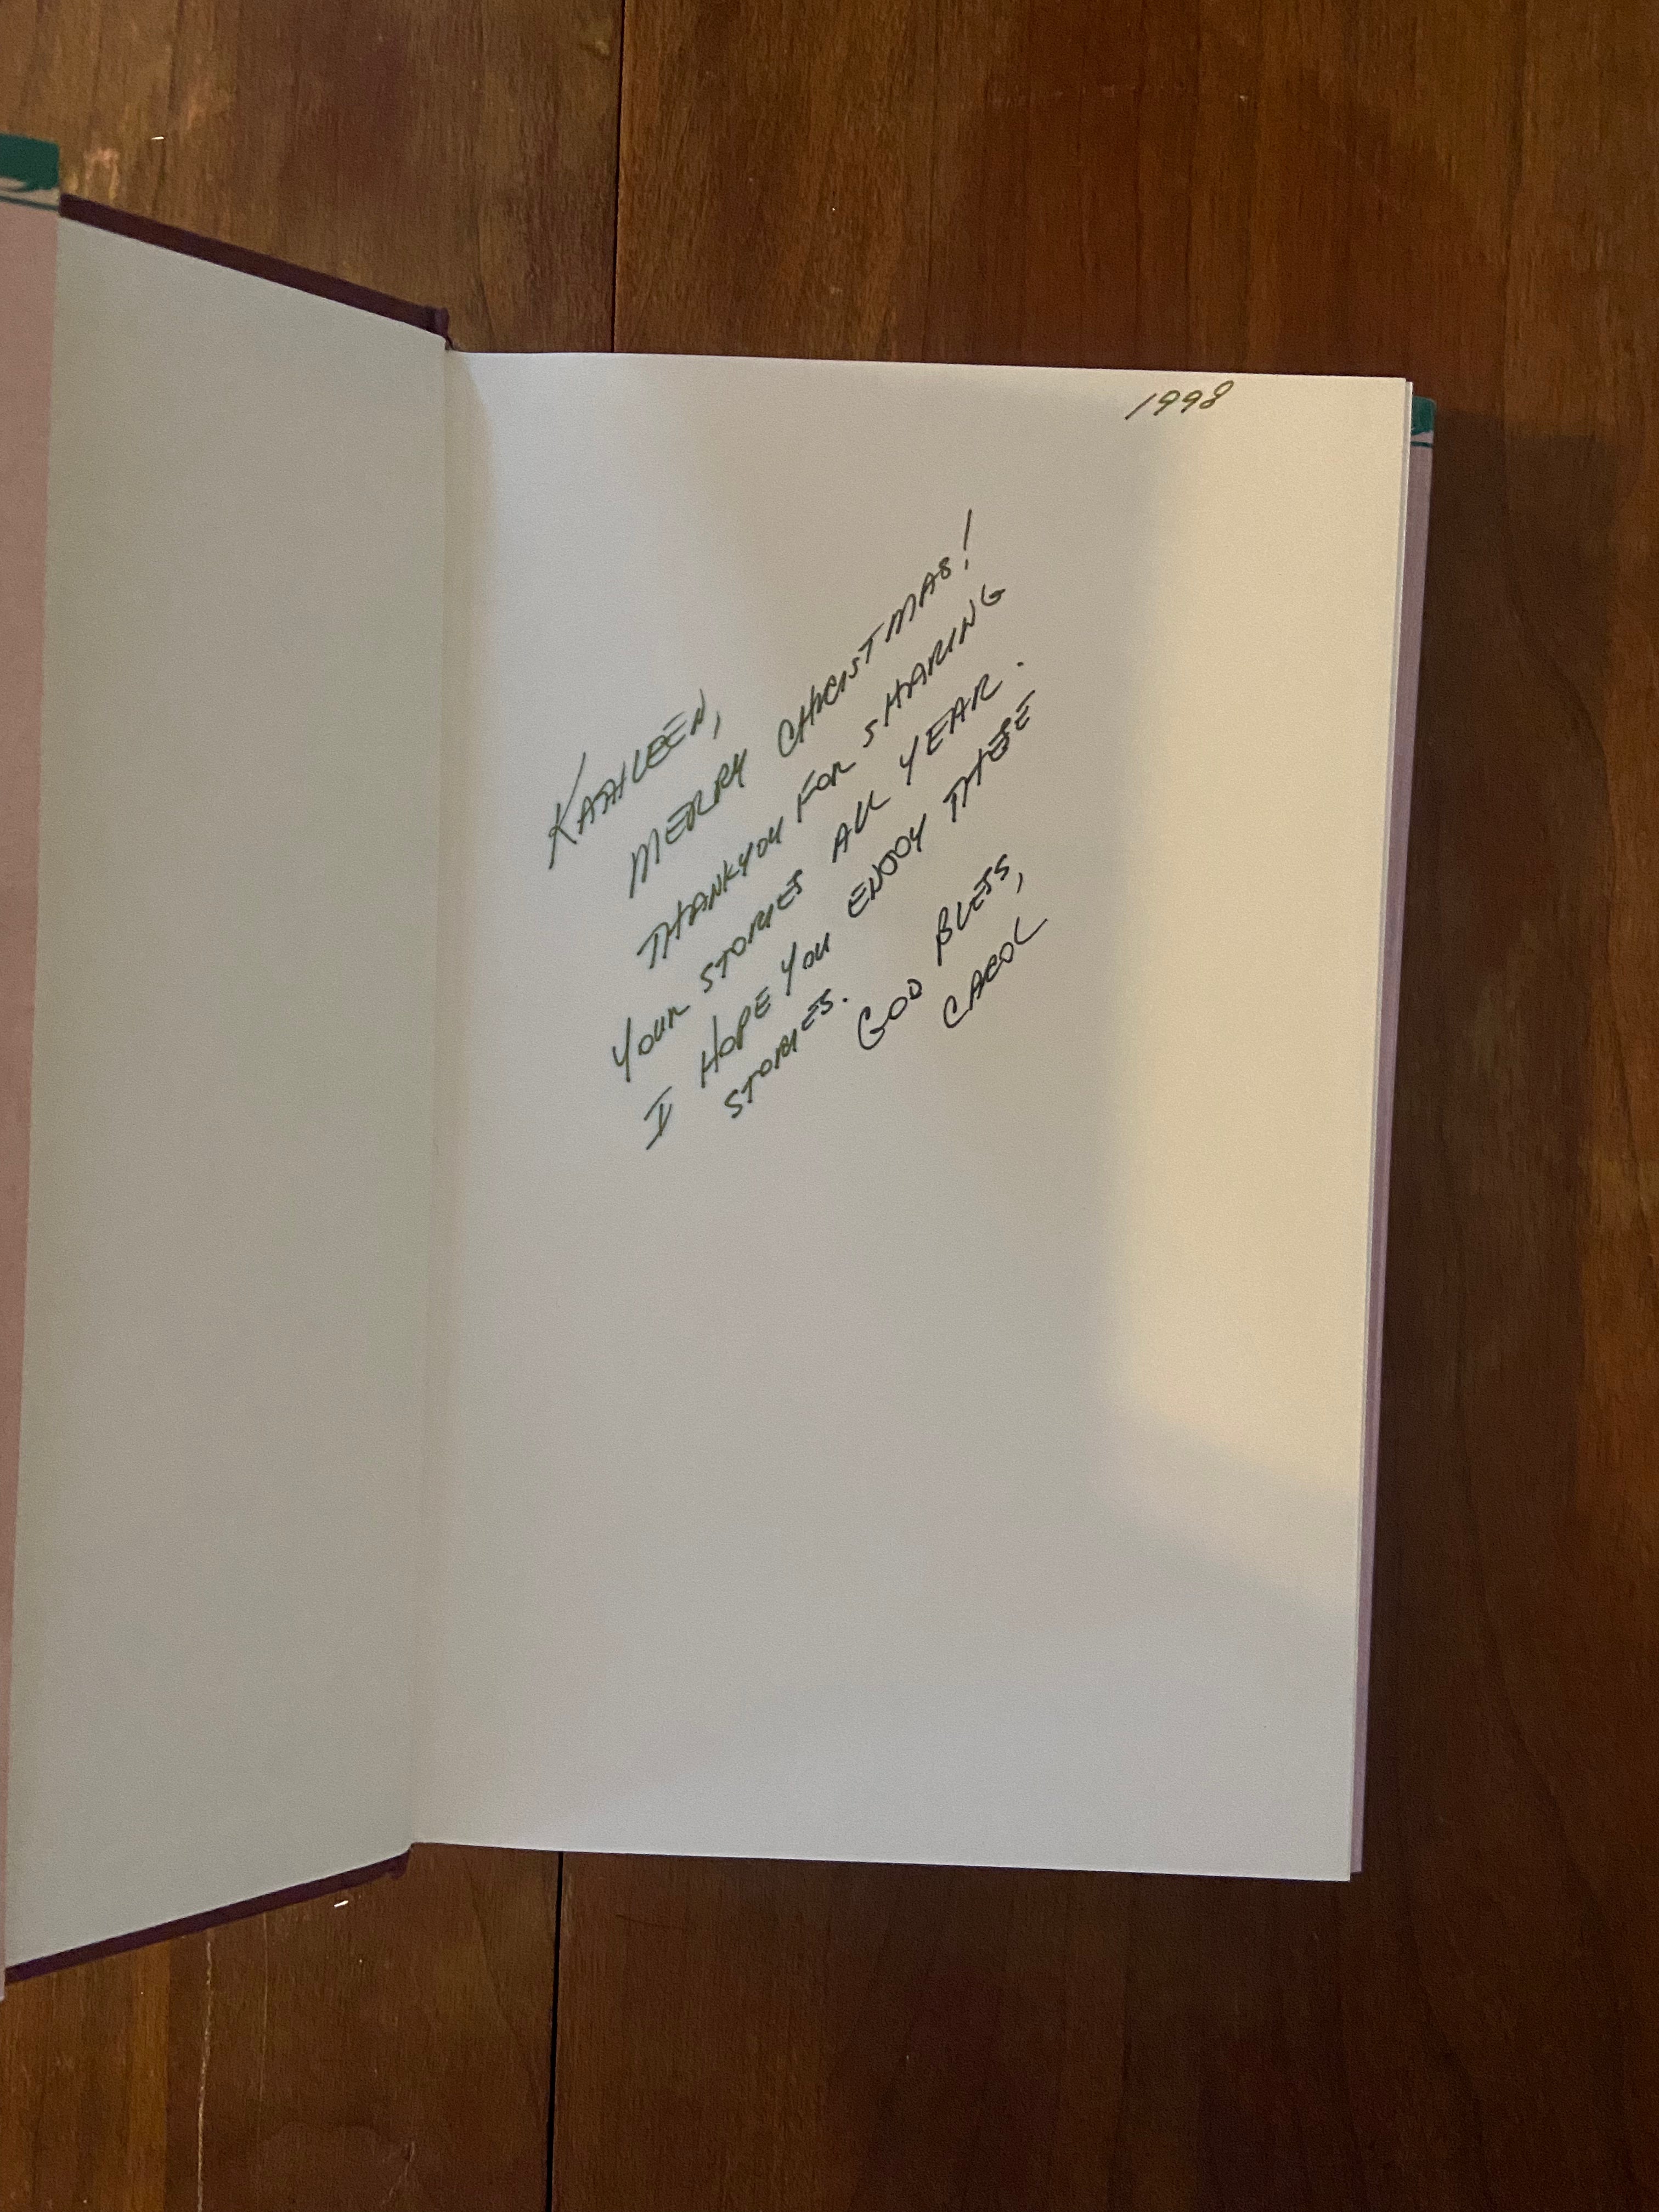 1998
KATHLEEN,
MERRY CHRISTMAS!
THANKYOU FOR SHARING
YOUR STORIES ALL YEAR.
I HOPE YOU ENJOY THESE
STORIES.
GOD BLESS,
CAROL